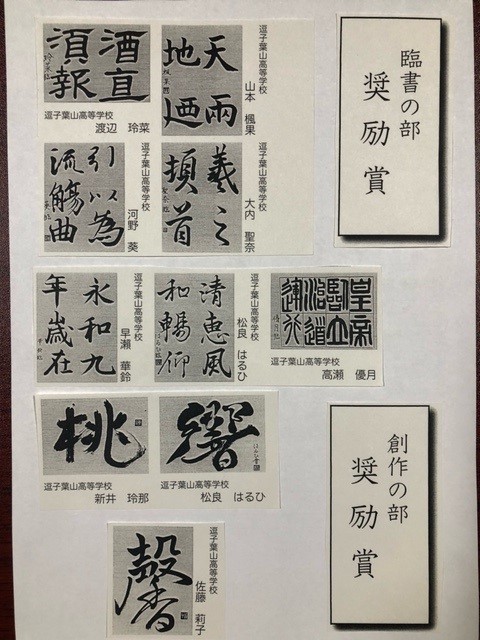 臨書の部
奨励賞
天雨
地
逗子葉山高等学校
山本　楓果
酒直
湏報
逗子葉山高等学校
渡辺　玲菜
羲之
頓首
逗子葉山高等学校
大内　聖奈
引以為
流觴曲
逗子葉山高等学校
河野　葵
皇帝
逗子葉山高等学校
高瀬　優月
清恵風
和暢仰
逗子葉山高等学校
松良　はるひ
永和九
年歳在
逗子葉山高等学校
早瀬　華鈴
創作の部
奨励賞
響
逗子葉山高等学校
松良　はるひ
桃
逗子葉山高等学校
新井　玲那
馨
逗子葉山高等学校
佐藤　莉子